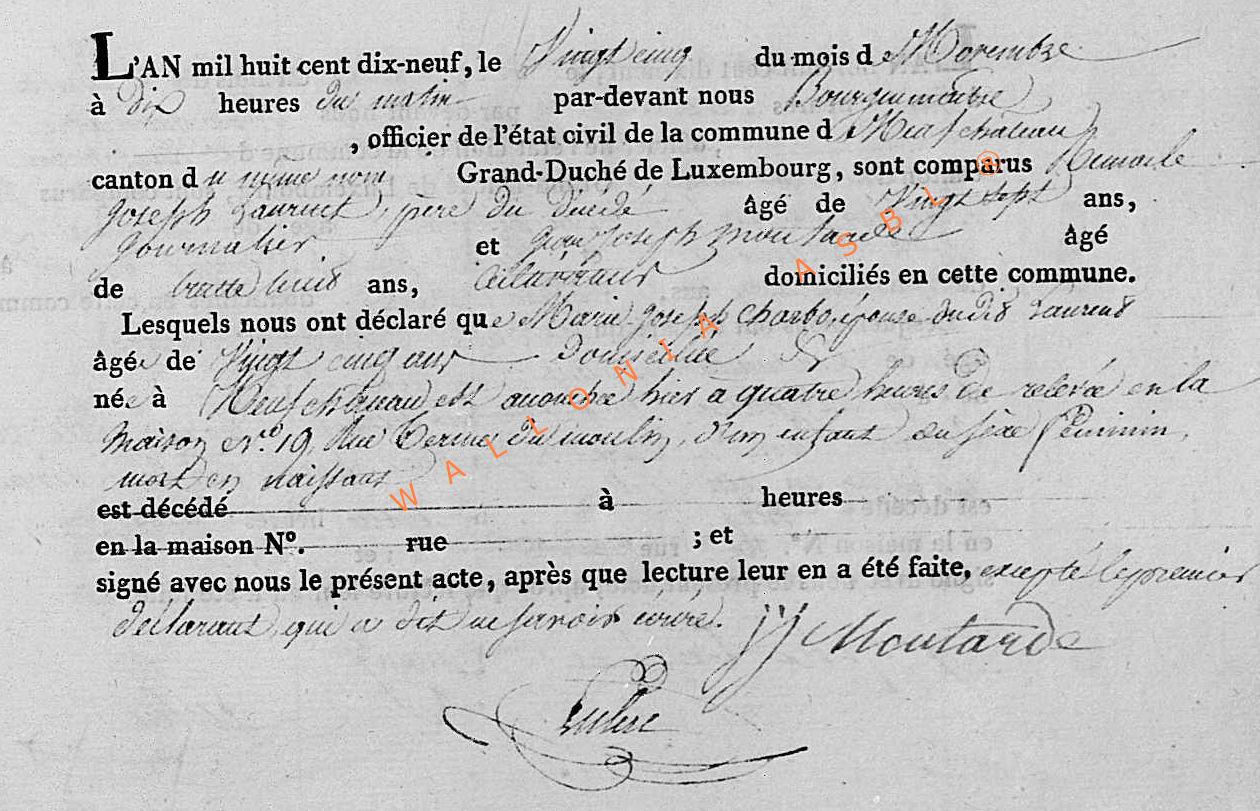 L'AN mil huit cent dix-neuf, le Vingt cinq du mois de Novembre
à dix heures du matin par-devant nous Bourguemaitre
, officier de l'état civil de la commune de Neufchâteau
canton du même nom Grand-Duché de Luxembourg, sont comparus Remacle
Joseph Laurent, père du décédé âgé de Vingt sept ans,
Journalier et Jean Joseph Moutarde âgé
de trente huit ans, domiciliés en cette commune.
Lesquels nous ont déclaré que Marie Joseph Charbo, épouse dudit Laurent
âgée de Vingt cinq ans domiciliée &
née à Neufchâteau est accouchée hier a quatre heures de relevée en la
maison No. 19, Rue Terme du moulin, d'un enfant du sexe féminin,
mort en naissant
est décédé à heures
en la maison No. rue ; et
signé avec nous le présent acte, après que lecture leur en a été faite, excepté le premier
déclarant, qui a dit ne savoir écrire. JJ Moutarde
WALLONIA ASBL ®